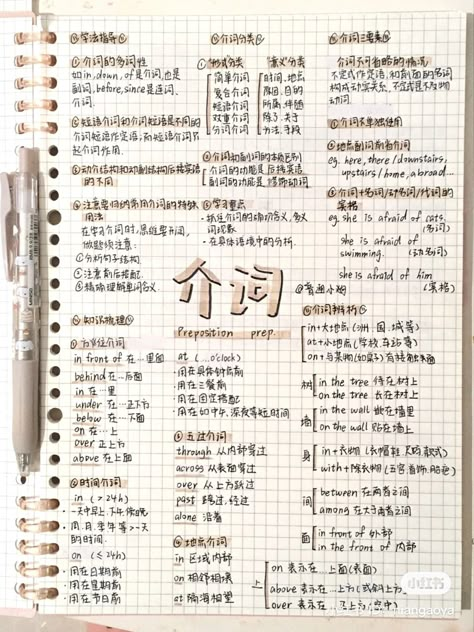 学法指导
① 介词的多词性
如in,down,of是介词,也是
副词,before,since是连词、
介词.
② 短语介词和介词短语是不同的
介词短语作定语;而短语介词只
起介词作用.
③ 动介结构和动副结构后接宾语
的不同
④ 注意要归纳常用介词的特殊
用法
在学习介词时,思维要开阔,
做题须注意:
① 分析句子结构.
② 注意前后搭配.
③ 精确理解单词含义.
知识梳理
① 方位介词
in front of 在…里面
behind 在…后面
in 在…里
under 在…正下方
below 在…下面
on 在…上
over 正上方
above 在上面
② 时间介词
in (>24h)
·一天中早上、下午、傍晚
·周.月.季.年等>一天
的时间.
on (≤24h)
·用在日期前
·用在星期前
·用在节日前
介词分类
① 形式分类
简单介词
复合介词
短语介词
双重介词
分词介词
意义分类
时间.地点
原因.目的
所属.伴随
除了.关于
方法.手段
② 介词和副词的本质区别
介词的功能是后接宾语
副词的功能是修饰动词
③ 学习重点
·抓住介词的确切含义、多义
词现象
·在具体语境中的分析.
介词
Preposition prep.
at (…o'clock)
·用在具体钟点前
·用在三餐前
·用在固定搭配
·用在如中午,深夜等短时间
③ 五过介词
through 从内部穿过
across 从表面穿过
over 从上方跃过
past 路过,经过
alone 沿着
④ 地点介词
in 区域内部
on 相邻相接
at 隔海相望
介词三要素
介词不可省略的情况
不定式作定语,和前面的名词
构成动宾关系,不定式是不及物
动词.
① 介词不单独使用
② 地点副词前省介词
eg. here, there / downstairs,
upstairs / home, abroad…
③ 介词+名词/动名词/代词的
宾格
eg. she is afraid of cats.
(名词)
she is afraid of
swimming. (动名词)
she is afraid of him
(宾格)
介词辨析
in+大地点(洲.国.城等)
at+小地点(学校.车站等)
on+与某物(如桌子)有接触表面
树
in the tree 待在树上
on the tree 长在树上
墙
in the wall 嵌在墙里
on the wall 贴在墙上
身
in+衣物(衣帽鞋 式)
with+除衣物(五官.首饰.脸色)
间
between 在两者之间
among 在大于两者之间
面
in front of 外部
in the front of 内部
上
on 表示在…上面(表面)
above 表示在…上方(或斜上方)
over 表示在…正上方(空中)
小红书